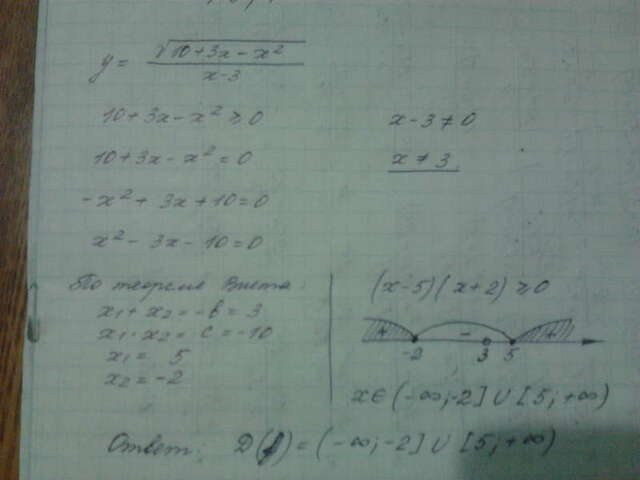 y = √(10+3x−x²) / (x-3)
10+3x-x² ≥ 0
x-3≠0
10+3x-x² = 0
x ≠ 3
-x² + 3x + 10 = 0
x² - 3x - 10 = 0
По теореме Виета:
x₁ + x₂ = -b = 3
x₁ · x₂ = c = -10
x₁ = 5
x₂ = -2
(x-5)(x+2) ≥ 0
+ - +
-2 3 5
x ∈ (-∞; -2] ∪ [5; +∞)
Ответ: D(f) = (-∞; -2] ∪ [5; +∞)